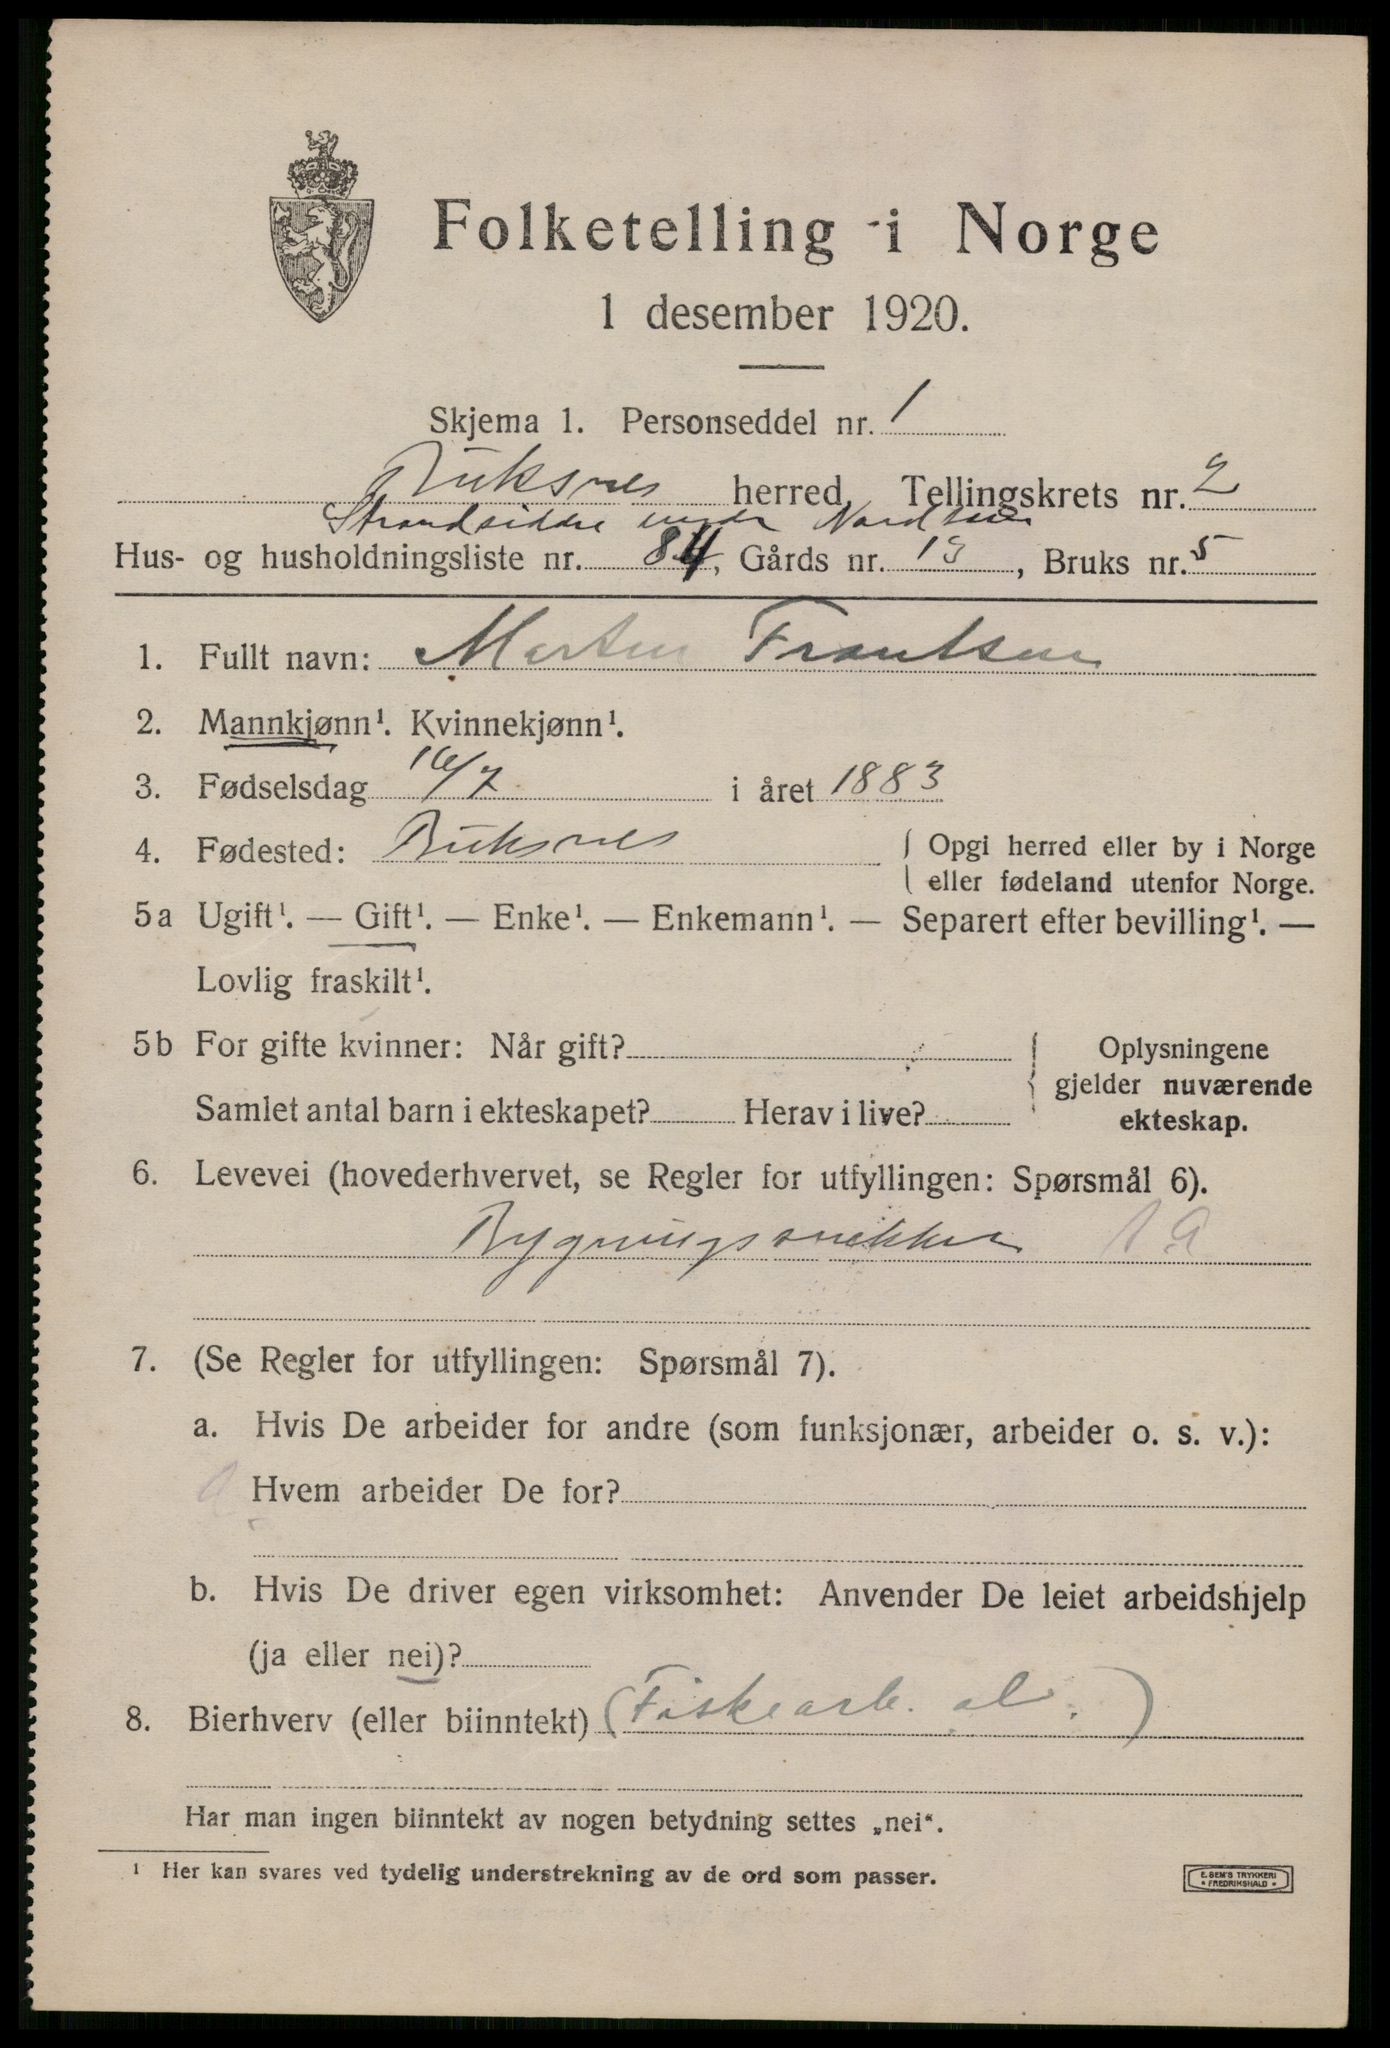 Folketelling i Norge
1 desember 1920.
Skjema 1. Personseddel nr. 1
Buksnes herred. Tellingskrets nr. 2
Strandsidden under Nordsun
Hus- og husholdningsliste nr. 84, Gårds nr. 13, Bruks nr. 5
1. Fullt navn: Martin Frantsen
2. Mannkjønn¹. Kvinnekjønn¹.
3. Fødselsdag 16/7 i året 1883
4. Fødested: Buksnes
Opgi herred eller by i Norge
eller fødeland utenfor Norge.
5a Ugift¹. — Gift¹. — Enke¹. — Enkemann¹. — Separert efter bevilling¹. —
Lovlig fraskilt¹.
5b For gifte kvinner: Når gift?
Samlet antal barn i ekteskapet? Herav i live?
Oplysningene
gjelder nuværende
ekteskap.
6. Levevei (hovederhvervet, se Regler for utfyllingen: Spørsmål 6).
Bygningssnekker
7. (Se Regler for utfyllingen: Spørsmål 7).
a. Hvis De arbeider for andre (som funksjonær, arbeider o. s. v.):
Hvem arbeider De for?
b. Hvis De driver egen virksomhet: Anvender De leiet arbeidshjelp
(ja eller nei)?
8. Bierhverv (eller biinntekt) (Fiskearb. al.)
Har man ingen biinntekt av nogen betydning settes „nei“.
¹ Her kan svares ved tydelig understrekning av de ord som passer.
E. SEM'S TRYKKERI
• FREDRIKSHALD •